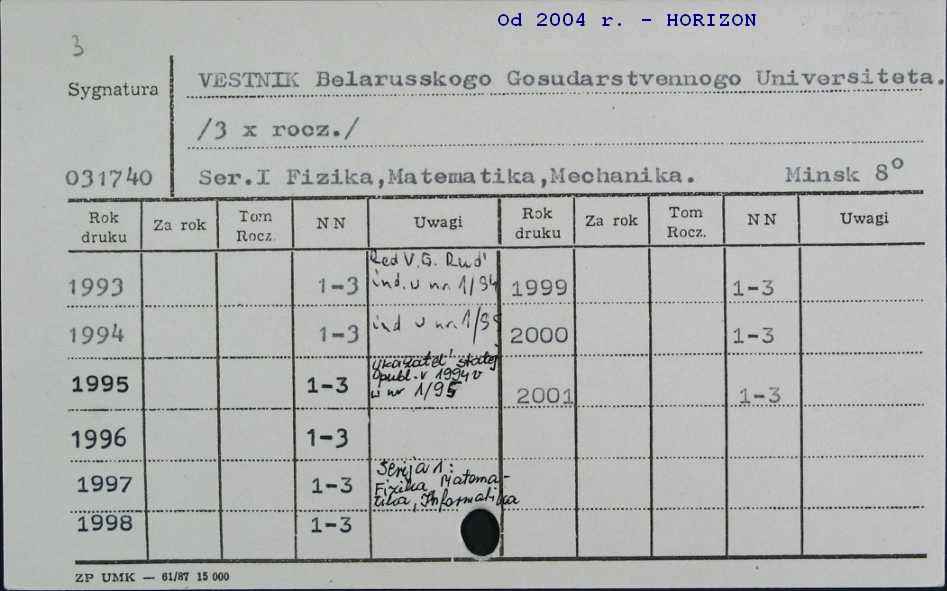 Od 2004 r. - HORIZON
3
Sygnatura
VESTNIK Belarusskogo Gosudarstvennogo Universiteta.
/3 x rocz./
031740
Ser.I Fizika,Matematika,Mechanika. Minsk 8°
Rok druku Za rok Tom Rocz. NN Uwagi Rok druku Za rok Tom Rocz. NN Uwagi
Red V.G. Rud'
1993 1-3 ind. w nr. 1/94 1999 1-3
1994 1-3 ind w nr. 1/95 2000 1-3
ukazatel' statej
1995 1-3 opubl. v 1994 v
w nr 1/95 2001 1-3
1996 1-3
Serija 1:
1997 1-3 Fizika, Matema-
tika, Informatika
1998 1-3
ZP UMK — 61/87 15 000